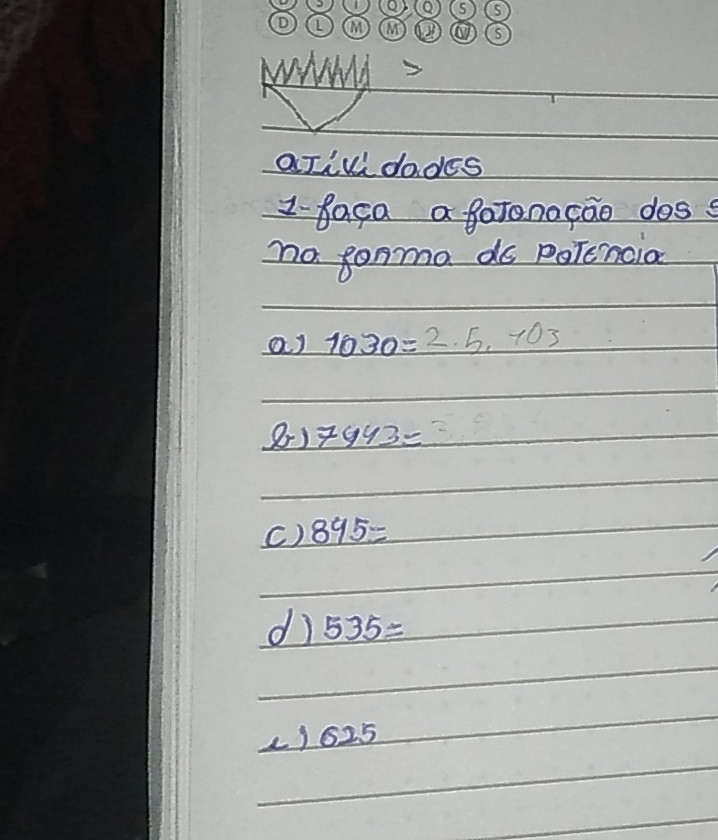 D S T Q Q S S
D L M M J V S
atividades
1-faça a fatonação dos s
na forma de Potência
a) 1030= 2.5. 103
b) 7943=
c) 895=
d) 535=
e) 625